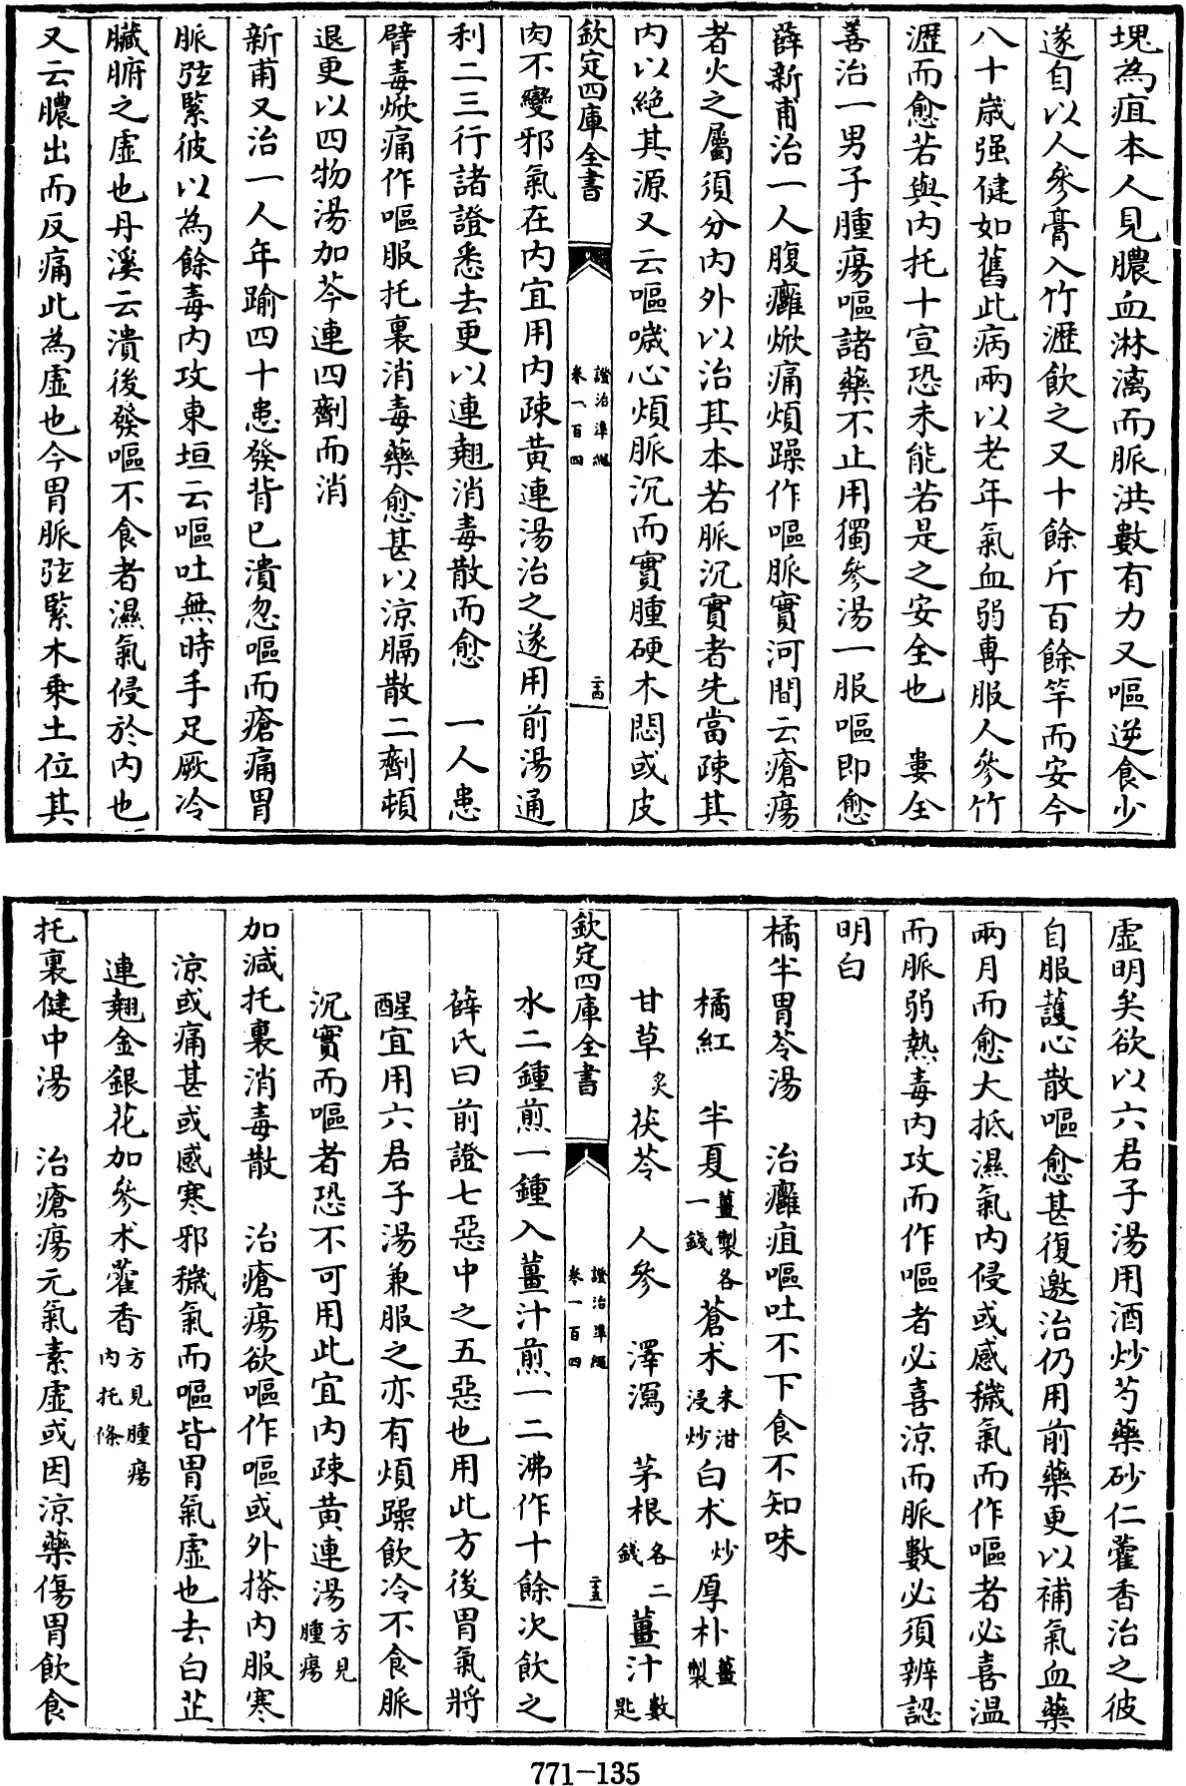 塊為疽本人見膿血淋漓而脈洪數有力又嘔逆食少
遂自以人參膏入竹瀝飲之又十餘斤百餘竿而安今
八十歲强健如舊此病兩以老年氣血弱專服人參竹
瀝而愈若與内托十宣恐未能若是之安全也　婁全
善治一男子腫瘍嘔諸藥不止用獨參湯一服嘔即愈
薛新甫治一人腹癰焮痛煩躁作嘔脈實河間云瘡瘍
者火之屬須分内外以治其本若脈沉實者先當疎其
内以絶其源又云嘔噦心煩脈沉而實腫硬木悶或皮
欽定四庫全書
證治準繩
卷一百四
二十四
肉不變邪氣在内宜用内疎黄連湯治之遂用前湯通
利二三行諸證悉去更以連翹消毒散而愈　一人患
臂毒焮痛作嘔服托裏消毒藥愈甚以凉膈散二劑頓
退更以四物湯加芩連四劑而消
新甫又治一人年踰四十患發背已潰忽嘔而瘡痛胃
脈弦緊彼以為餘毒内攻東垣云嘔吐無時手足厥冷
臟腑之虛也丹溪云潰後發嘔不食者濕氣侵於内也
又云膿出而反痛此為虛也今胃脈弦緊木乗土位其
虛明矣欲以六君子湯用酒炒芍藥砂仁藿香治之彼
自服護心散嘔愈甚復邀治仍用前藥更以補氣血藥
兩月而愈大抵濕氣内侵或感穢氣而作嘔者必喜温
而脈弱熱毒内攻而作嘔者必喜凉而脈數必須辨認
明白
橘半胃苓湯　治癰疽嘔吐不下食不知味
橘紅　半夏薑製各一錢　蒼术米泔浸炒　白术炒　厚朴薑製
甘草炙　茯苓　人參　澤瀉　茅根各二錢　薑汁數匙
欽定四庫全書
證治準繩
卷一百四
二十五
水二鍾煎一鍾入薑汁煎一二沸作十餘次飲之
薛氏曰前證七惡中之五惡也用此方後胃氣將
醒宜用六君子湯兼服之亦有煩躁飲冷不食脈
沉實而嘔者恐不可用此宜内疎黄連湯方見腫瘍
加減托裏消毒散　治瘡瘍欲嘔作嘔或外搽内服寒
凉或痛甚或感寒邪穢氣而嘔皆胃氣虛也去白芷
連翹金銀花加參术藿香方見腫瘍内托條
托裏健中湯　治瘡瘍元氣素虛或因凉藥傷胃飲食
771-135